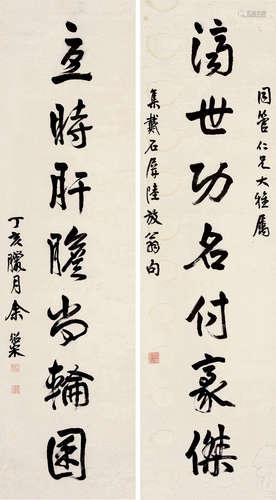 管仁兄大雅屬
濟世功名付豪傑
集戴石屏陸放翁句
憂時肝膽尚輪囷
丁亥臘月余